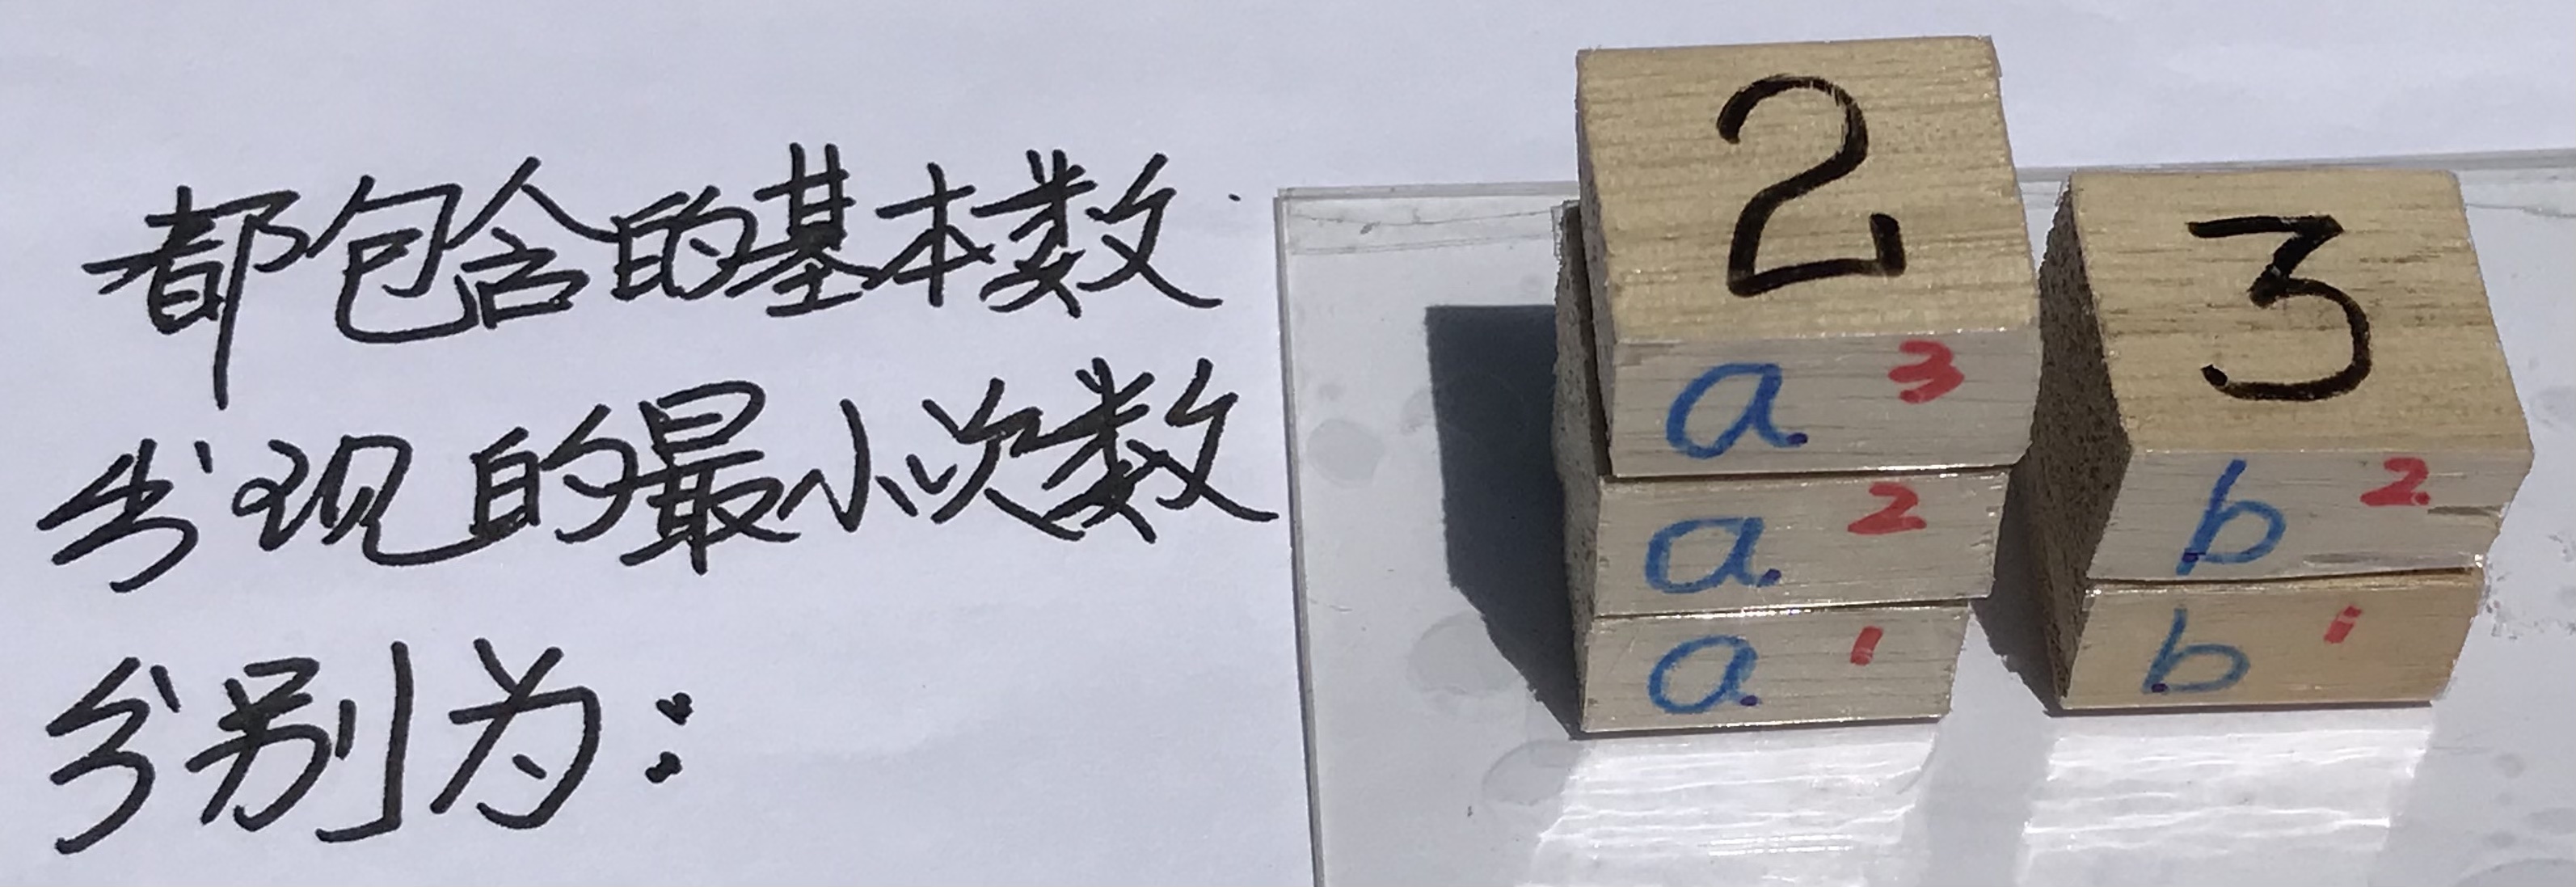 都包含的基本数
出现的最小次数
分别为:
2
a 3
a 2
a 1
3
b 2
b 1